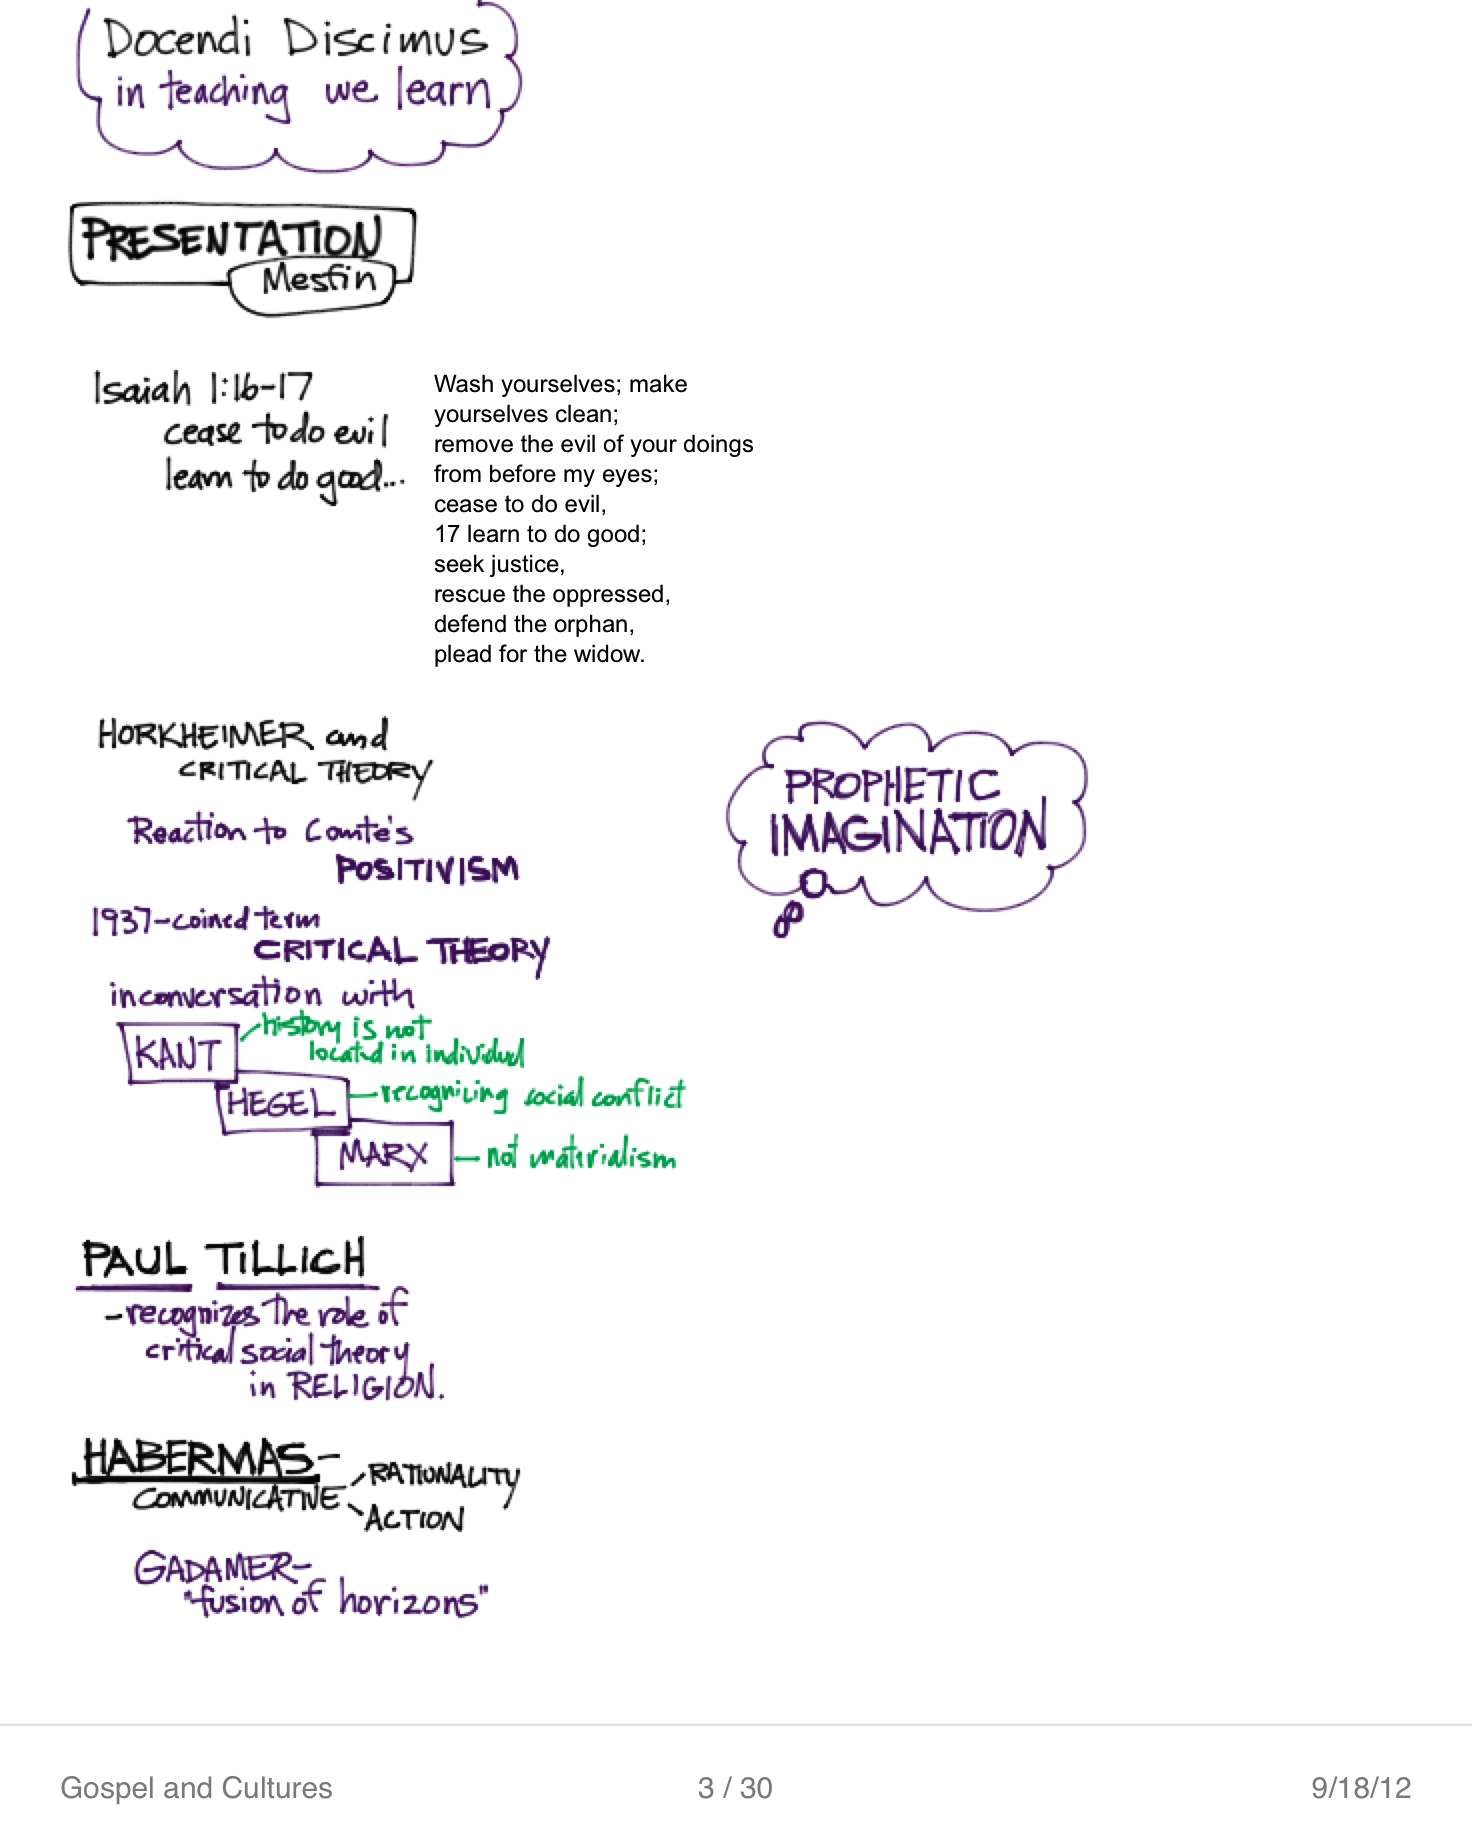 Docendi Discimus
in teaching we learn
PRESENTATION
Mesfin
Isaiah 1:16-17
cease to do evil
learn to do good...
Wash yourselves; make
yourselves clean;
remove the evil of your doings
from before my eyes;
cease to do evil,
17 learn to do good;
seek justice,
rescue the oppressed,
defend the orphan,
plead for the widow.
HORKHEIMER and
CRITICAL THEORY
Reaction to Comte's
POSITIVISM
1937-coined term
CRITICAL THEORY
inconversation with
KANT
history is not
located in individual
HEGEL
recognizing social conflict
MARX
not materialism
PROPHETIC
IMAGINATION
PAUL TILLICH
-recognizes the role of
critical social theory
in RELIGION.
HABERMAS-
COMMUNICATIVE
RATIONALITY
ACTION
GADAMER-
"fusion of horizons"
Gospel and Cultures
3 / 30
9/18/12